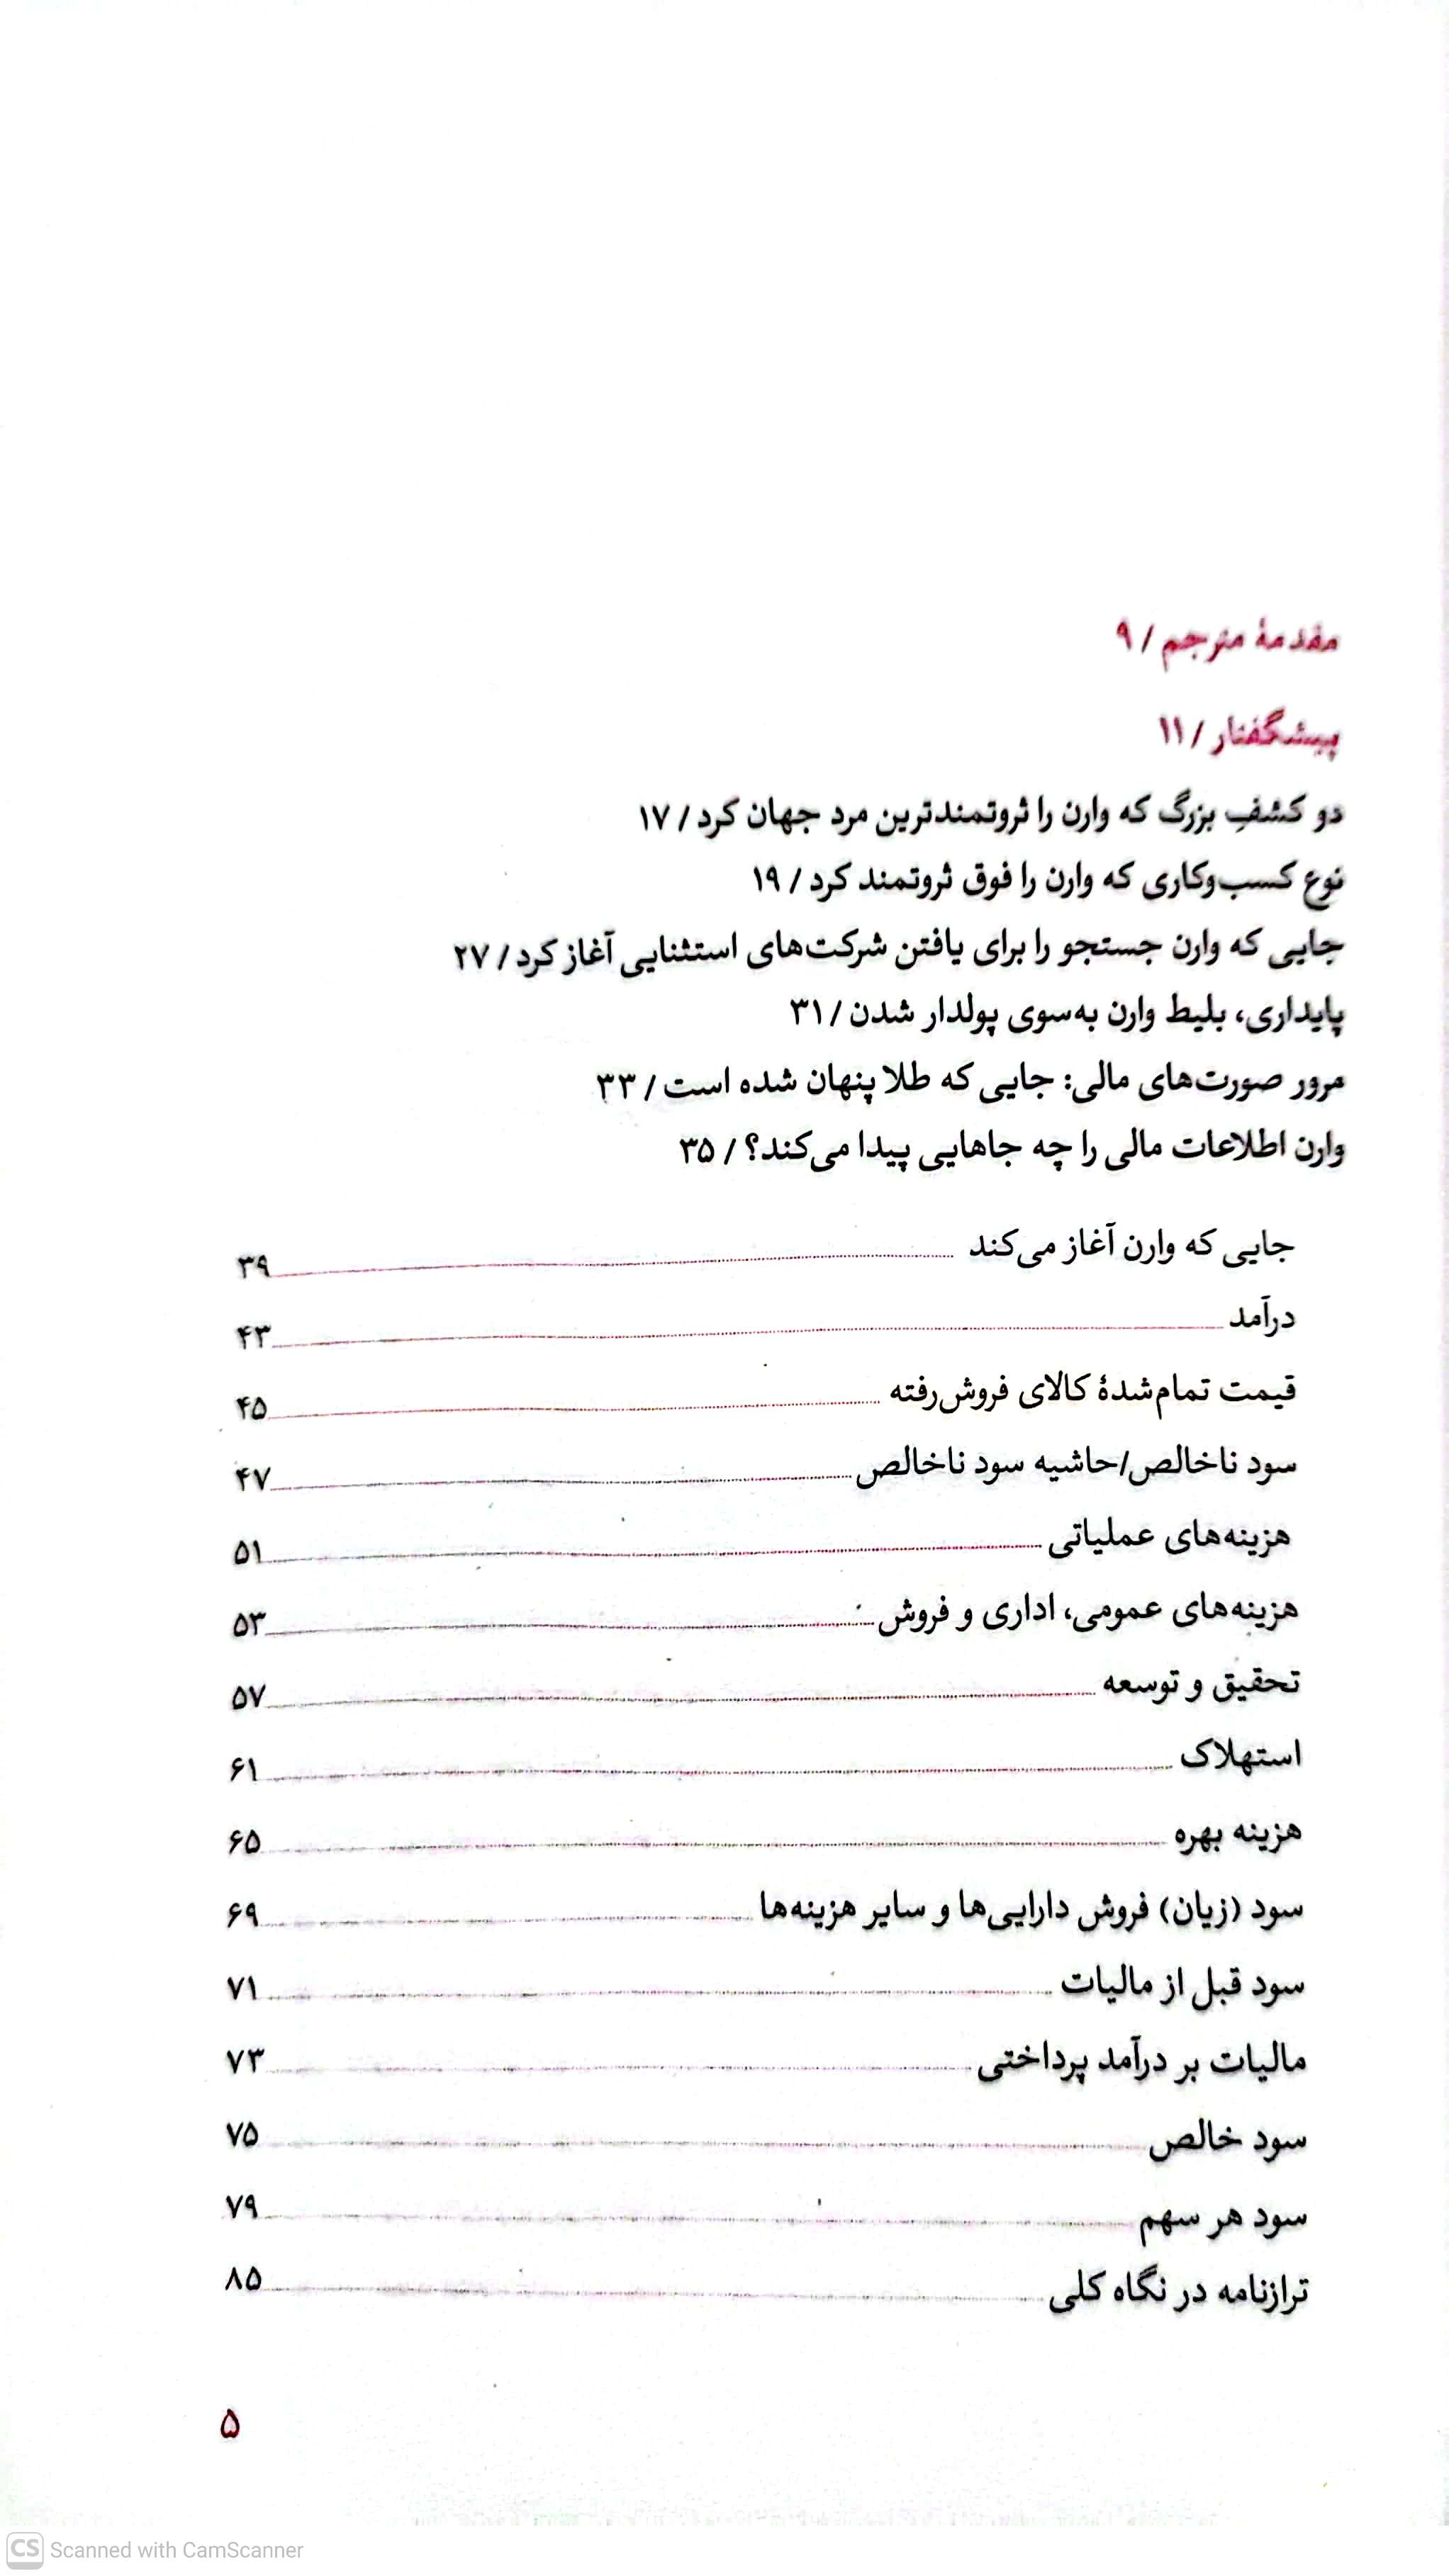 مقدمهٔ مترجم / ۹
پیشگفتار / ۱۱
دو کشفِ بزرگ که وارن را ثروتمندترین مرد جهان کرد / ۱۷
نوع کسب‌وکاری که وارن را فوق ثروتمند کرد / ۱۹
جایی که وارن جستجو را برای یافتن شرکت‌های استثنایی آغاز کرد / ۲۷
پایداری، بلیط وارن به‌سوی پولدار شدن / ۳۱
مرور صورت‌های مالی: جایی که طلا پنهان شده است / ۳۳
وارن اطلاعات مالی را چه جاهایی پیدا می‌کند؟ / ۳۵
جایی که وارن آغاز می‌کند ........ ۳۹
درآمد ........ ۴۳
قیمت تمام‌شدهٔ کالای فروش‌رفته ........ ۴۵
سود ناخالص/حاشیه سود ناخالص ........ ۴۷
هزینه‌های عملیاتی ........ ۵۱
هزینه‌های عمومی، اداری و فروش ........ ۵۳
تحقیق و توسعه ........ ۵۷
استهلاک ........ ۶۱
هزینه بهره ........ ۶۵
سود (زیان) فروش دارایی‌ها و سایر هزینه‌ها ........ ۶۹
سود قبل از مالیات ........ ۷۱
مالیات بر درآمد پرداختی ........ ۷۳
سود خالص ........ ۷۵
سود هر سهم ........ ۷۹
ترازنامه در نگاه کلی ........ ۸۵
۵
CS Scanned with CamScanner